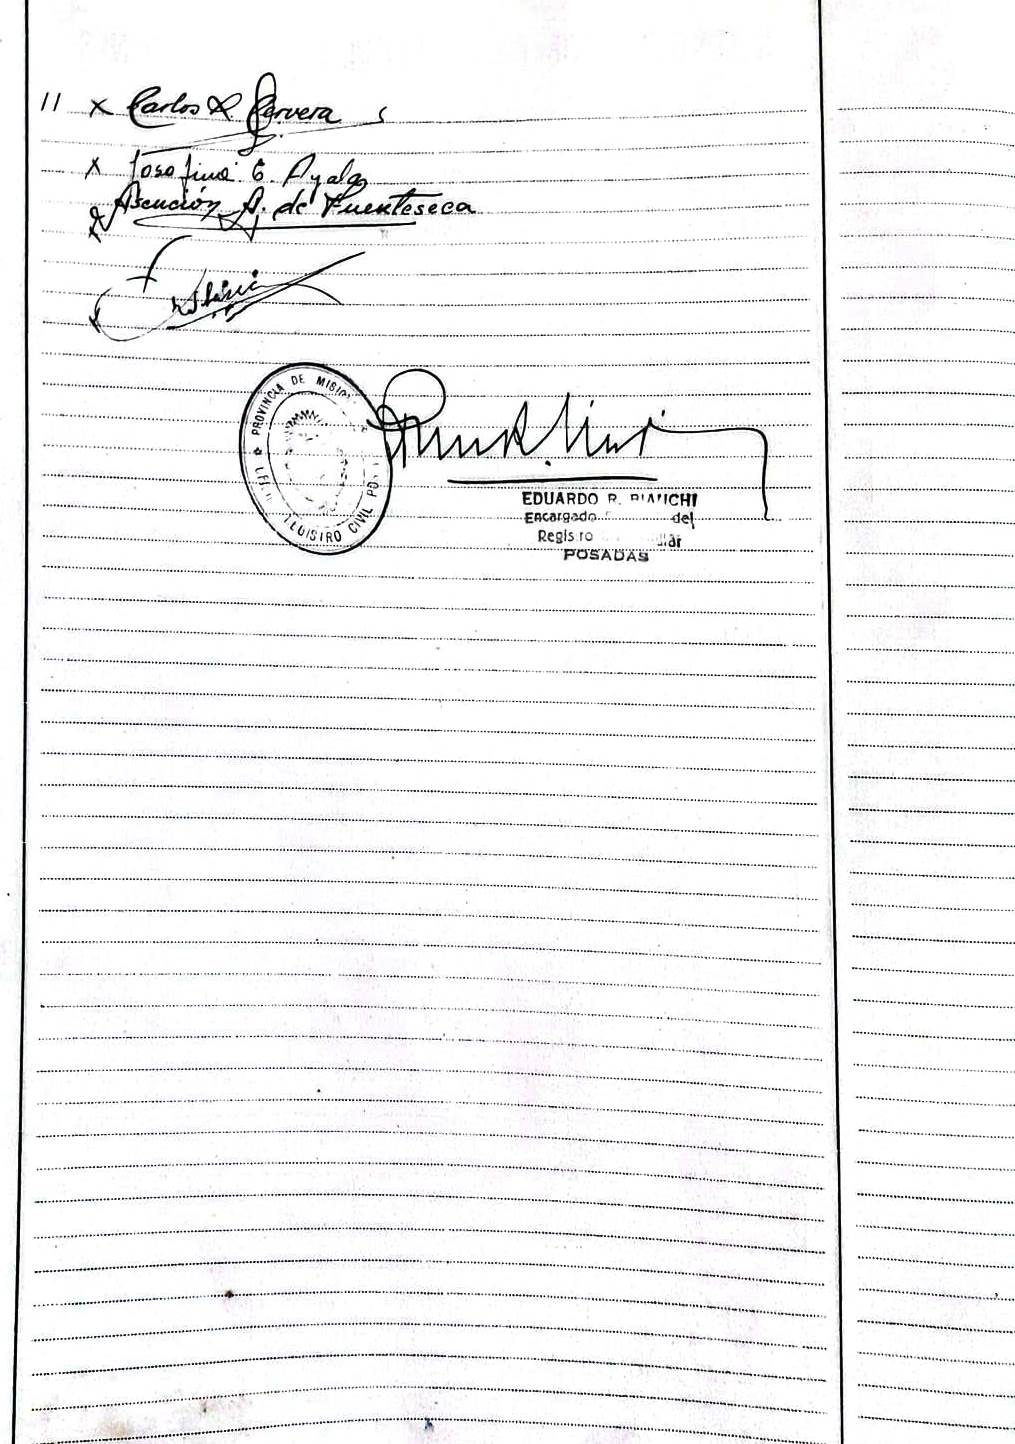 11 x Carlos R. Cervera
x Josefina E. Ayala
x Asención A. de Fuenteseca
PROVINCIA DE MISIO
REGISTRO CIVIL PO
EDUARDO R. BIANCHI
Encargado del
Registro
POSADAS